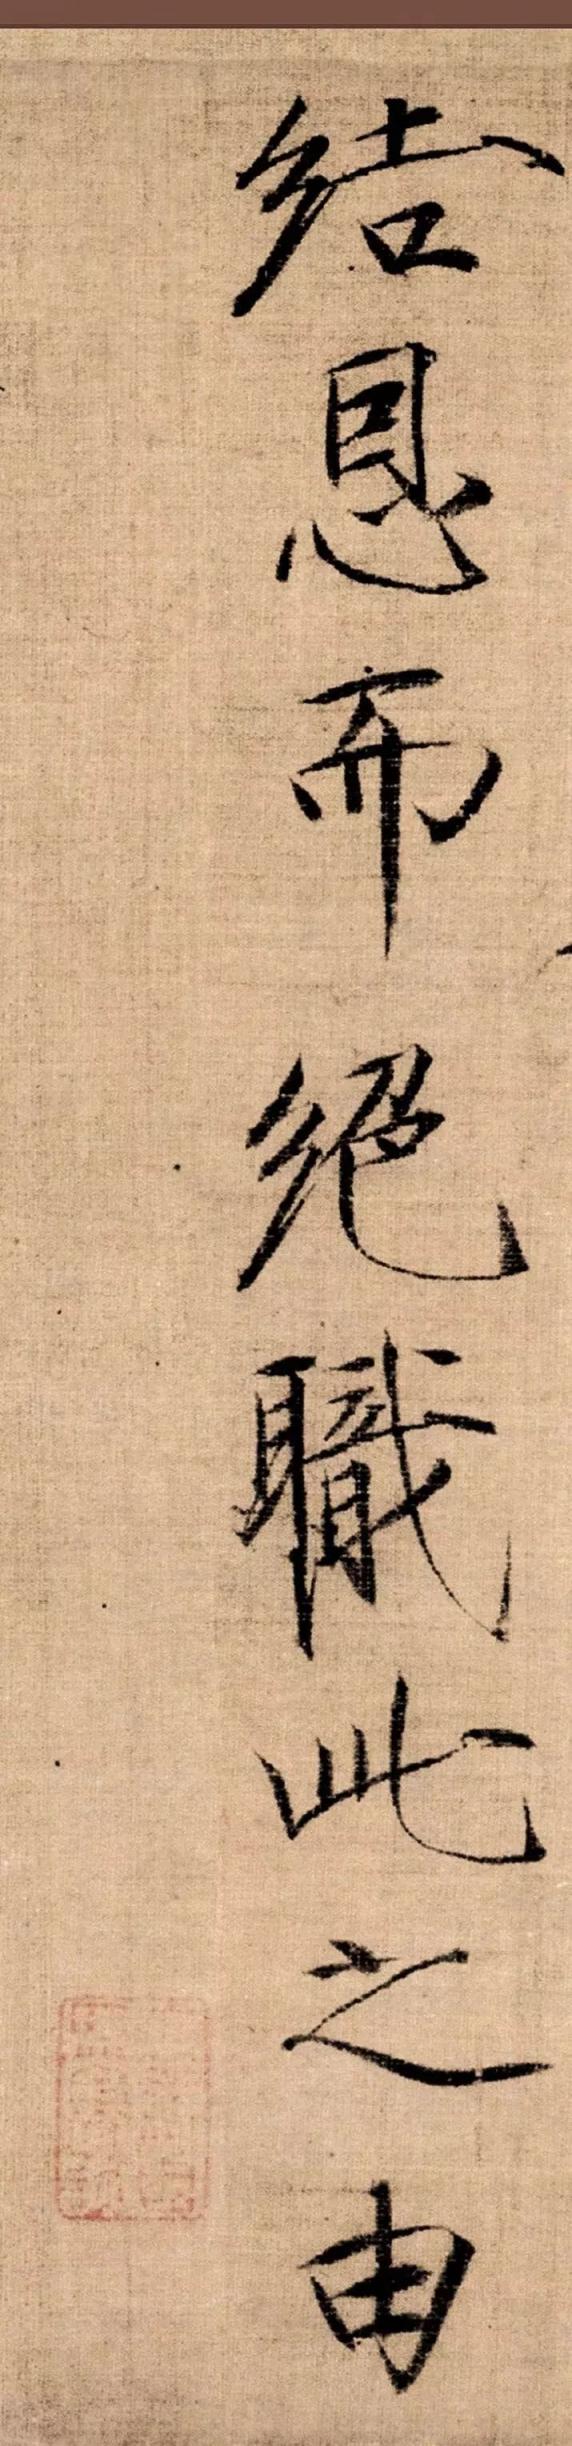 結恩而絕職此之由